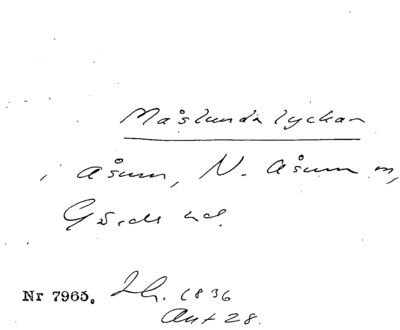 Måslunda lyckan
i Åsum, N. Åsum sn,
Gärds hd.
Nr 7965. Lh. 1836
Akt 28.